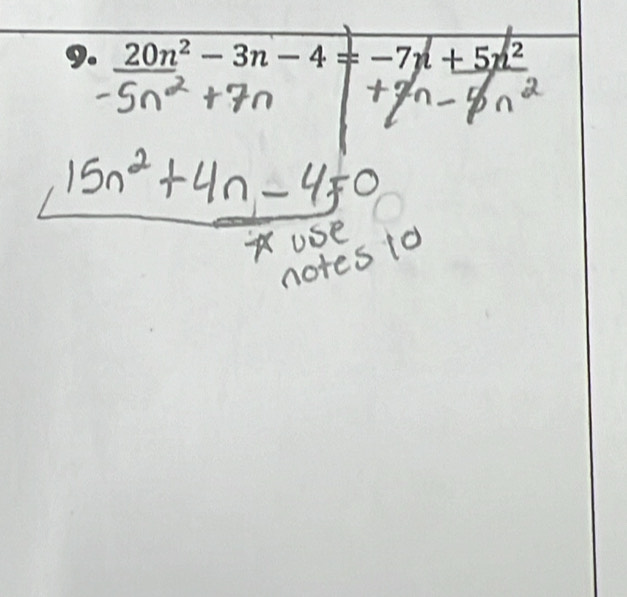 9. 20n² - 3n - 4 = -7n + 5n²
-5n² + 7n +7n - 5n²
15n² + 4n - 4 = 0
* use
notes to